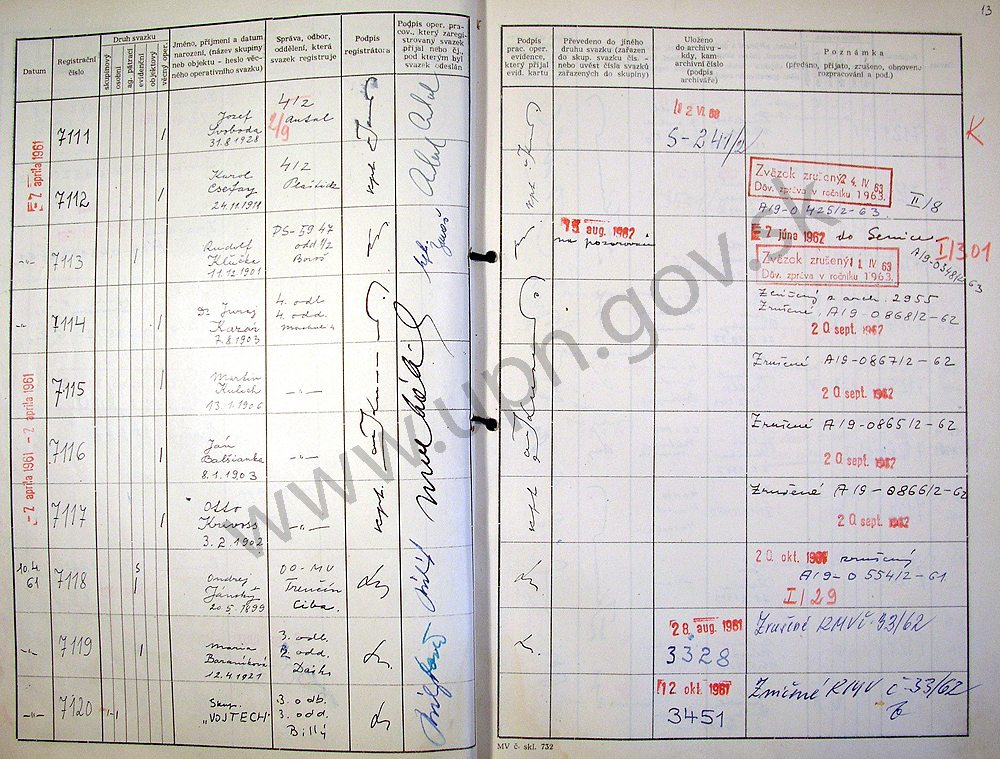 13
Datum
Registrační
číslo
Druh svazku
skupinový
osobní
ag. pátrací
evidenční
objektový
věcný oper.
Jméno, příjmení a datum
narození, (název skupiny
neb objektu - heslo věc-
ného operativního svazku)
Správa, odbor,
oddělení, která
svazek registruje
Podpis
registrátora
Podpis oper. pra-
cov., který zaregi-
strovaný svazek
přijal nebo čj.,
pod kterým byl
svazek odeslán
Podpis
prac. oper.
evidence,
který přijal
evid. kartu
Převedeno do jiného
druhu svazku (zařazen
do skup. svazku čis. -
nebo uvést čísla svazků
zařazených do skupiny)
Uloženo
do archivu -
kdy, kam
archivní číslo
(podpis
archiváře)
Poznámka
(předáno, přijato, zrušeno, obnoveno
rozpracování a pod.)
-7. apríla 1961
7111
Jozef
Svoboda
31.8 1928
412
2/9
Antal
12 VI. 60
S-241/2
K
7112
Karol
Cserfay
24.11.1911
412
Zväzok zrušený 2 4. IV 63
Dôv. zpráva v ročníku 1963.
A/9-0425/2-63.
II/8
-"-
7113
Rudolf
Klučka
11.12.1901
PS-5947
odd 1/2
Boroš
15 aug. 1962
na pozorovanie
- 7 júna 1962 do Senice
A/9-0348/2-63
I/301
Zväzok zrušený 1 1. IV 63
Dôv. zpráva v ročníku 1963.
-"-
7114
Dr Juraj
Kazár
7.8.1903
4. odb.
4. odd.
Zrušený z arch. 2955
Zrušené, A/9-0868/2-62
20 sept. 1962
-7 apríla 1961
7115
Martin
Kulich
13.1.1906
-"-
Zrušené A/9-0867/2-62
20 sept. 1962
-7 apríla 1961
7116
Ján
Batšianka
8.1.1903
-"-
Zrušené A/9-0865/2-62
20 sept. 1962
7117
Otto
Krivoss
3.2.1902
-"-
Zrušené A/9-0866/2-62
20 sept. 1962
10.4.
61
7118
S
Ondrej
Jánský
20.5.1899
OO-MV
Trenčín
Ciba.
20 okt. 1961 zrušený
A/9-0554/2-61
I/29
-"-
7119
Maria
Baraníková
12.4.1921
3. odb.
2. odd.
28 aug. 1961
3328
Zrušené RMV č. 33/62
-"-
7120
Skup.
"VOJTECH"
3. odb.
3. odd.
Billý
12 okt. 1961
3451
Zničené RMV č 33/62
MV č. skl. 732
www.upn.gov.sk